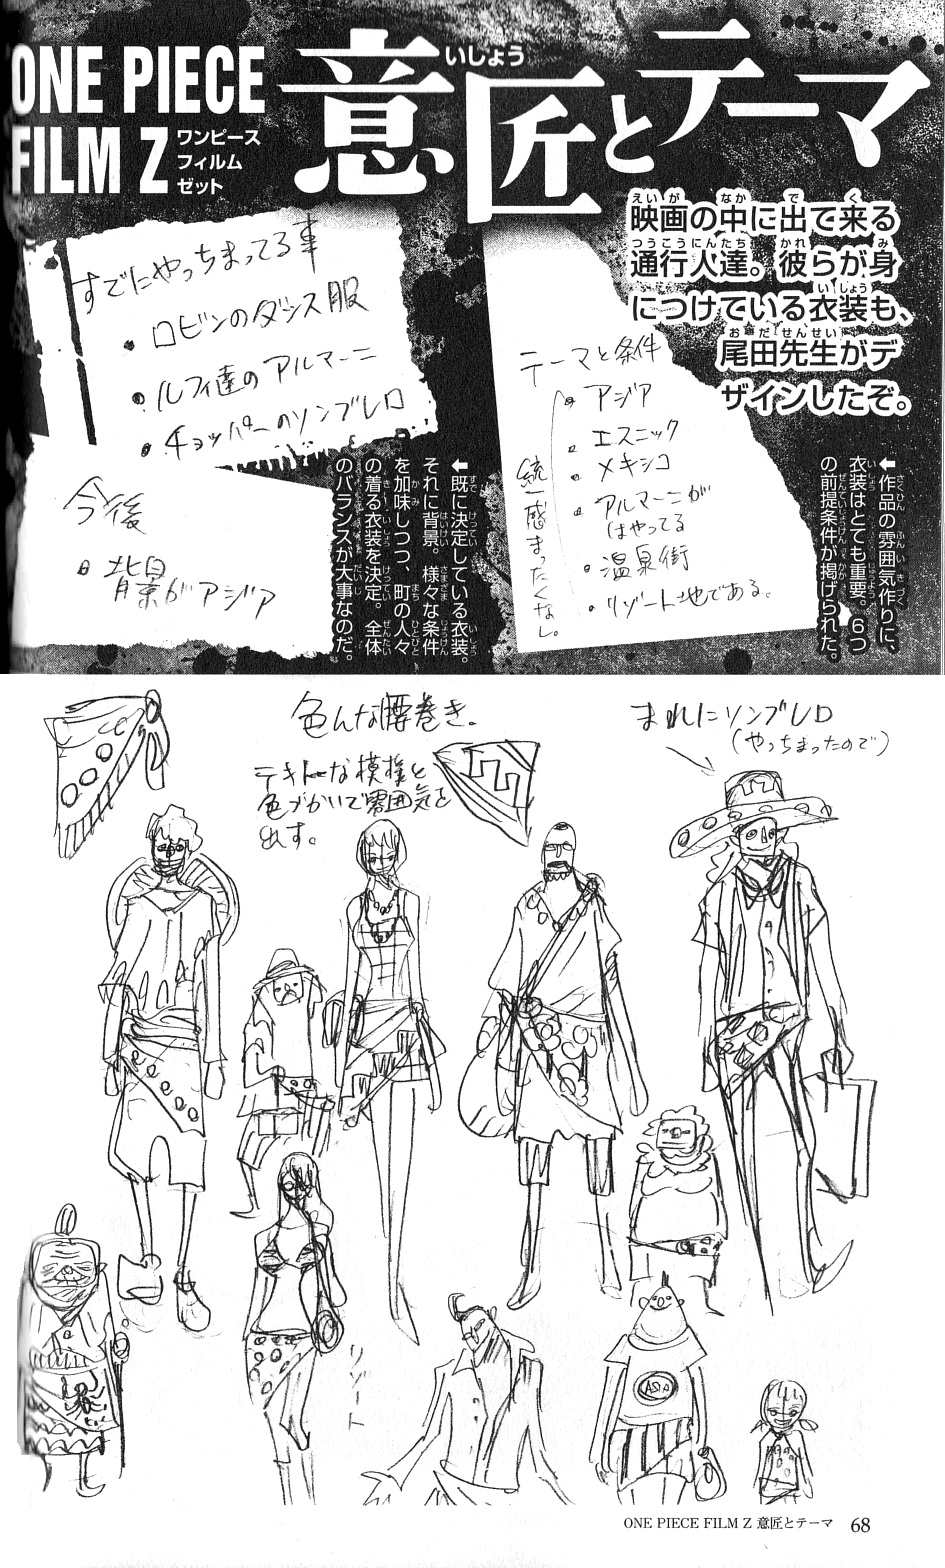 ONE PIECE
FILM Z
ワンピース
フィルム
ゼット
いしょう
意匠とテーマ
えいが なか で く
映画の中に出て来る
つうこうにんたち かれ み
通行人達。彼らが身
いしょう
につけている衣装も、
おだせんせい
尾田先生がデ
ザインしたぞ。
すでにやっちまってる事
・ロビンのダンス服
・ルフィ達のアルマーニ
・チョッパーのソンブレロ
今後
・背景がアジア
←既に決定している衣装。
それに背景。様々な条件
を加味しつつ、町の人々
の着る衣装を決定。全体
のバランスが大事なのだ。
テーマと条件
・アジア
・エスニック
・メキシコ
・アルマーニが
はやってる
・温泉街
・リゾート地である。
統一感まったくなし。
←作品の雰囲気作りに、
衣装はとても重要。6つ
の前提条件が掲げられた。
色んな腰巻き。
テキトーな模様と
色づかいで雰囲気を
出す。
まれにソンブレロ
(やっちまったので)
リゾート
ONE PIECE FILM Z 意匠とテーマ 68